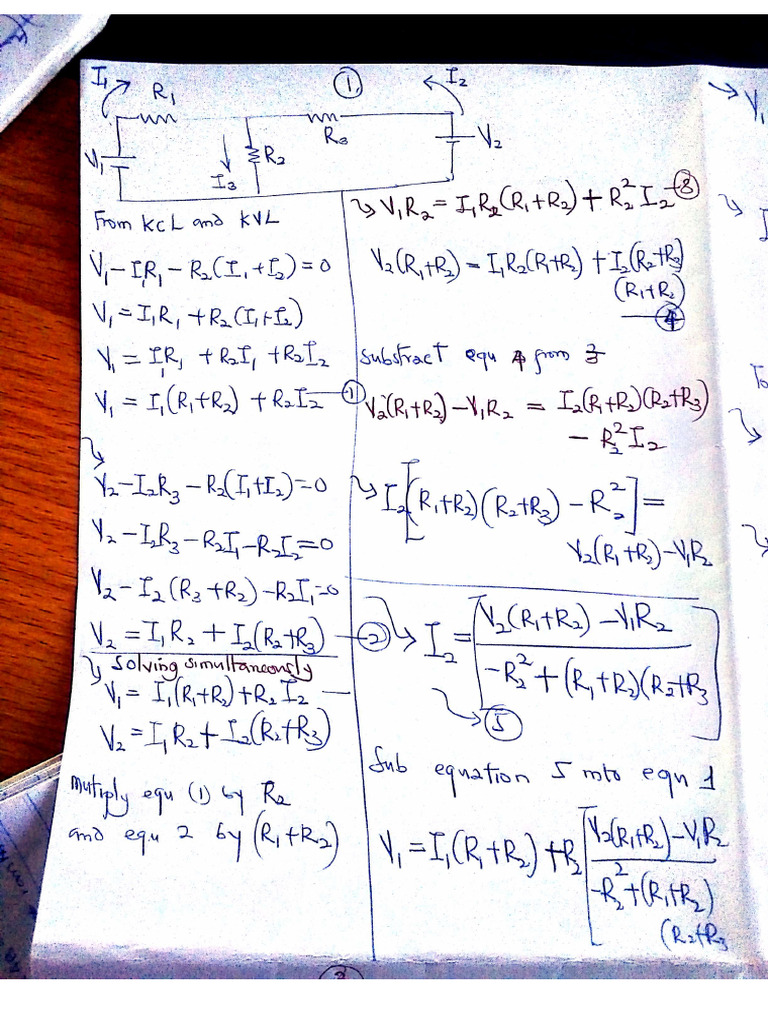 ①
I₁
R₁
I₂
R₃
V₁
R₂
V₂
I₃
From KCL and KVL
V₁ - I₁R₁ - R₂(I₁+I₂) = 0
V₁ = I₁R₁ + R₂(I₁+I₂)
V₁ = I₁R₁ + R₂I₁ + R₂I₂
V₁ = I₁(R₁+R₂) + R₂I₂ — ①
V₂ - I₂R₃ - R₂(I₁+I₂) = 0
V₂ - I₂R₃ - R₂I₁ - R₂I₂ = 0
V₂ - I₂(R₃+R₂) - R₂I₁ = 0
V₂ = I₁R₂ + I₂(R₂+R₃) — ②
Solving simultaneously
V₁ = I₁(R₁+R₂) + R₂I₂ —
V₂ = I₁R₂ + I₂(R₂+R₃)
Mutiply equ (1) by R₂
and equ 2 by (R₁+R₂)
V₁R₂ = I₁R₂(R₁+R₂) + R₂²I₂ — ③
V₂(R₁+R₂) = I₁R₂(R₁+R₂) + I₂(R₂+R₃)
(R₁+R₂)
— ④
Substract equ 4 from 3
V₂(R₁+R₂) - V₁R₂ = I₂(R₁+R₂)(R₂+R₃)
- R₂²I₂
I₂[(R₁+R₂)(R₂+R₃) - R₂²] =
V₂(R₁+R₂) - V₁R₂
I₂ = [V₂(R₁+R₂) - V₁R₂
-R₂² + (R₁+R₂)(R₂+R₃]
⑤
Sub equation 5 into equ 1
V₁ = I₁(R₁+R₂) + R₂[V₂(R₁+R₂) - V₁R₂
-R₂² + (R₁+R₂)
(R₂+R₃
V₁
I
To